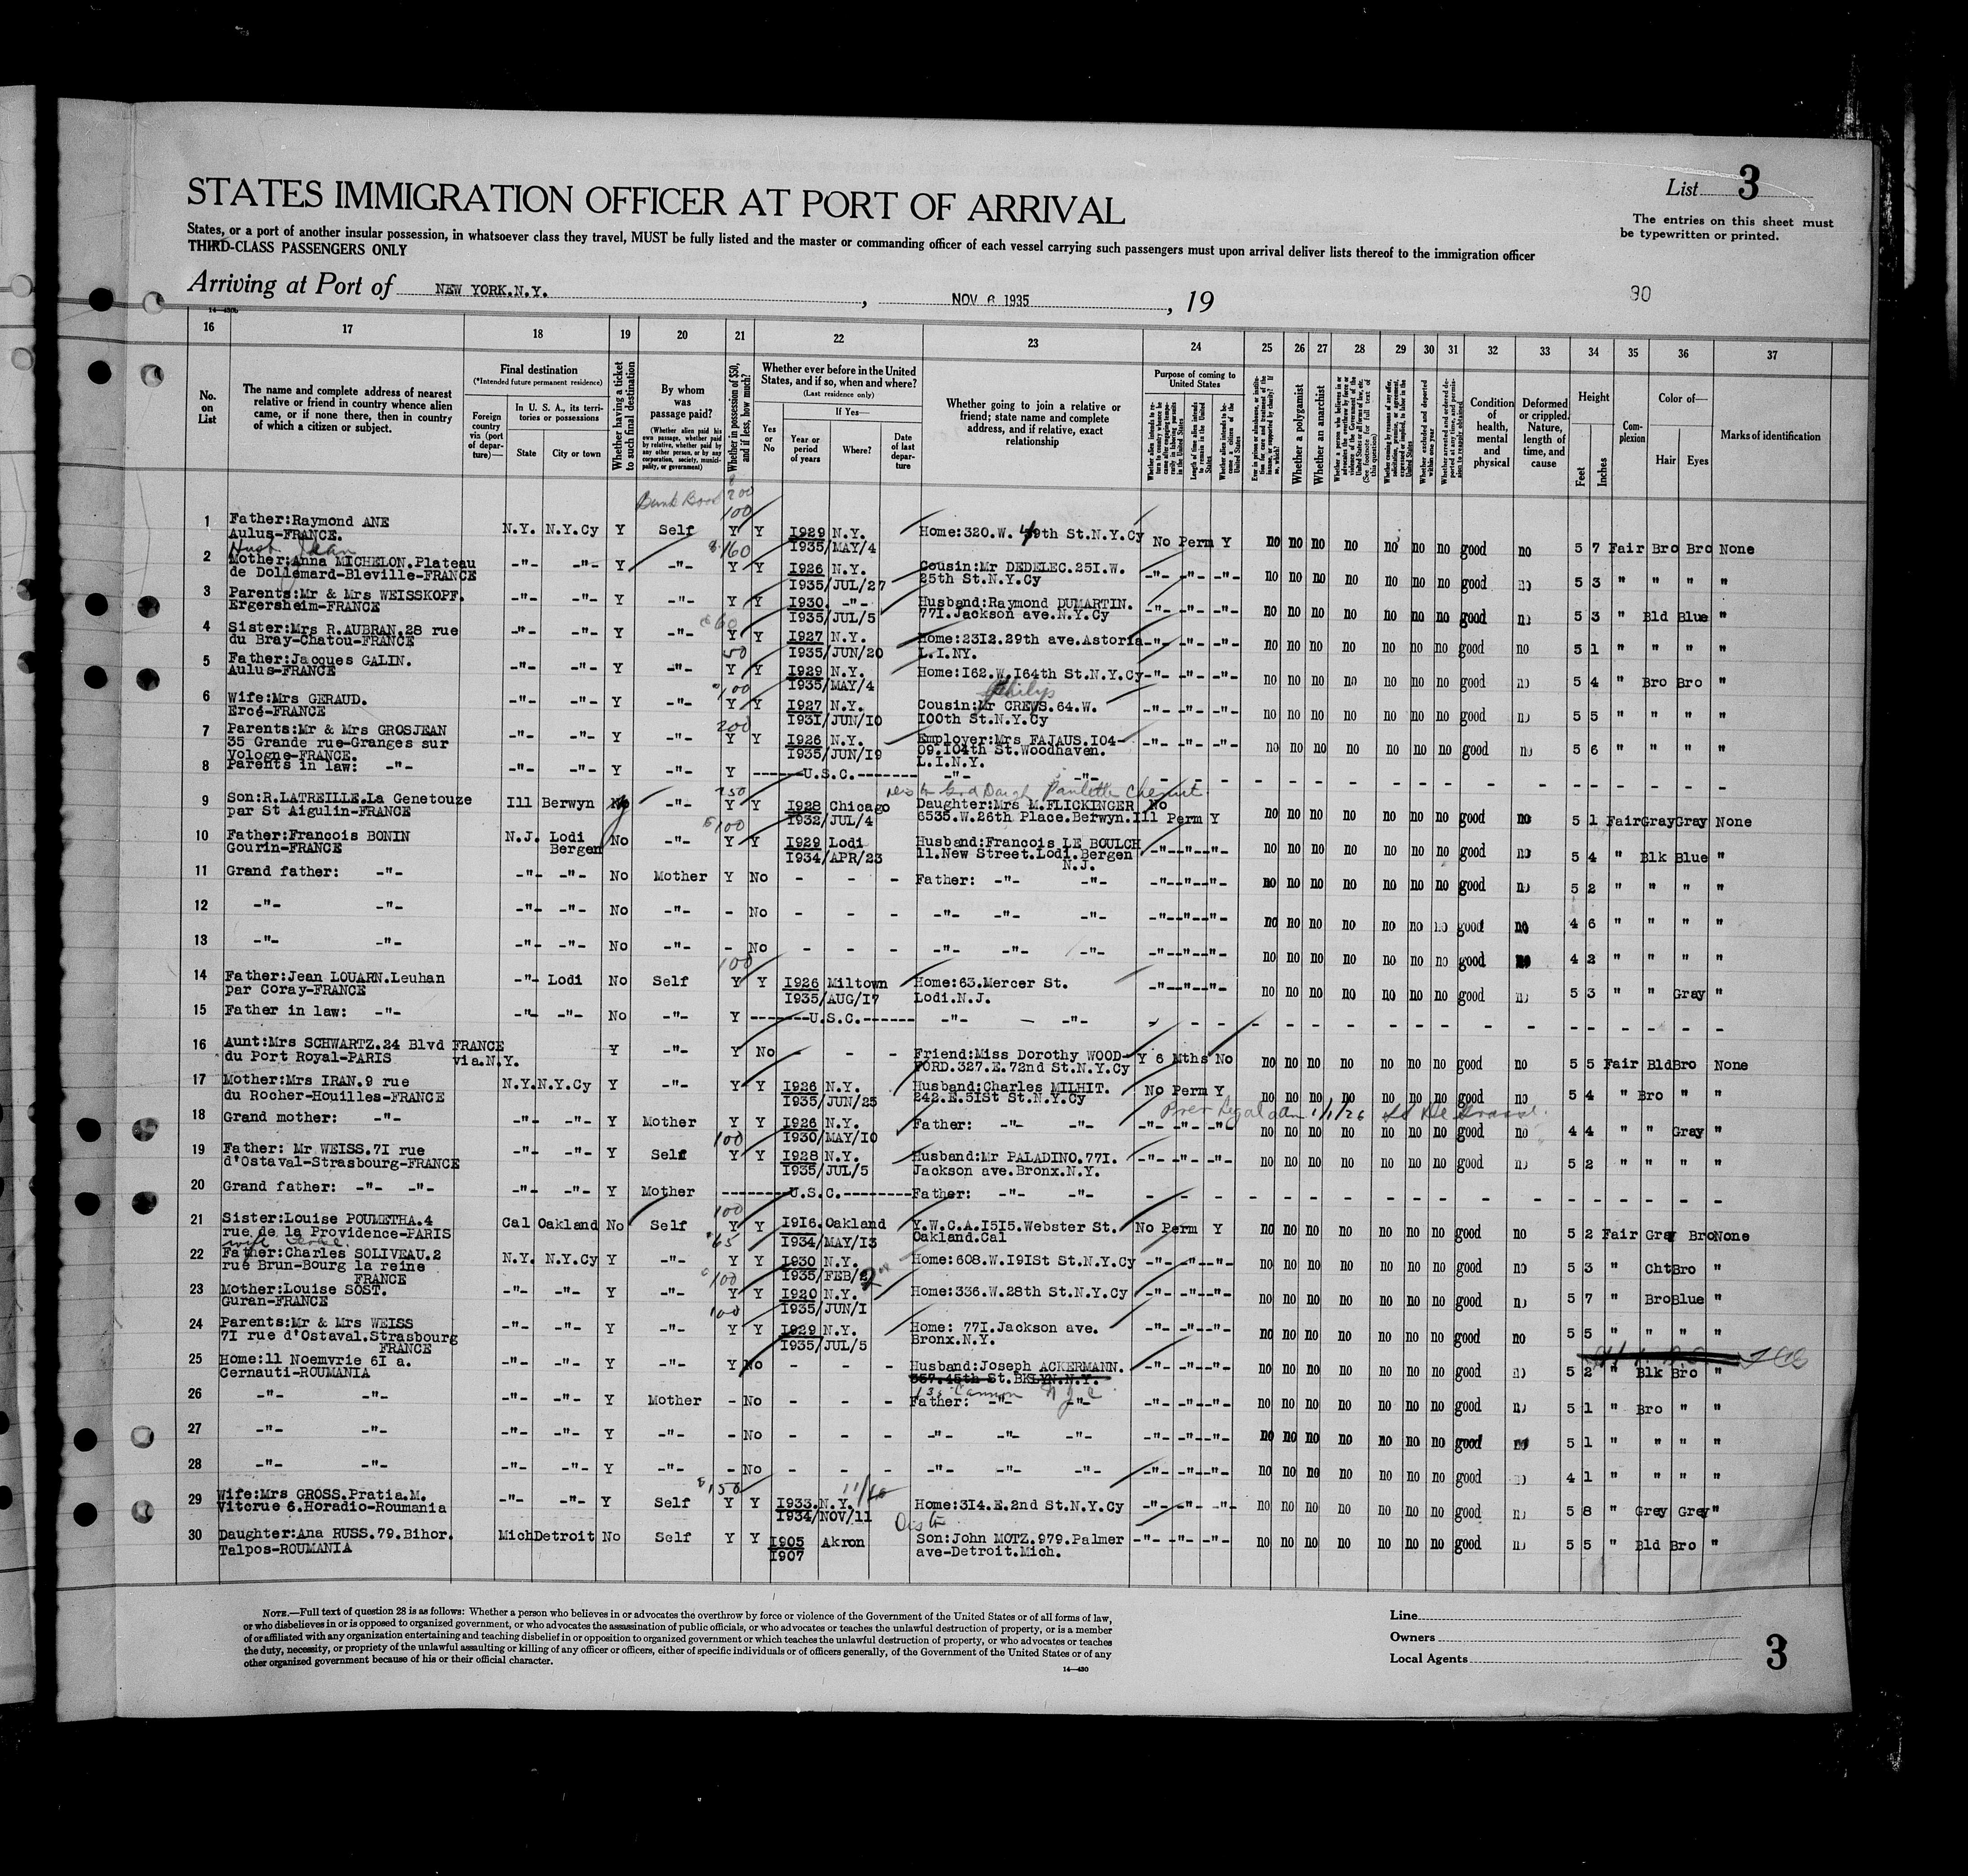 STATES IMMIGRATION OFFICER AT PORT OF ARRIVAL
List 3
The entries on this sheet must
be typewritten or printed.
States, or a port of another insular possession, in whatsoever class they travel, MUST be fully listed and the master or commanding officer of each vessel carrying such passengers must upon arrival deliver lists thereof to the immigration officer
THIRD-CLASS PASSENGERS ONLY
Arriving at Port of NEW YORK.N.Y. , NOV 6 1935 , 19
30
16 17 18 19 20 21 22 23 24 25 26 27 28 29 30 31 32 33 34 35 36 37
No. on List
The name and complete address of nearest relative or friend in country whence alien came, or if none there, then in country of which a citizen or subject.
Final destination
(*Intended future permanent residence)
Foreign country via (port of departure)—
In U. S. A., its territories or possessions
State
City or town
Whether having a ticket to such final destination
By whom was passage paid?
(Whether alien paid his own passage, whether paid by relative, whether paid by any other person, or by any corporation, society, municipality, or government)
Whether in possession of $50, and if less, how much?
Whether ever before in the United States, and if so, when and where?
(Last residence only)
Yes or No
If Yes—
Year or period of years
Where?
Date of last departure
Whether going to join a relative or friend; state name and complete address, and if relative, exact relationship
Purpose of coming to United States
Whether a polygamist
Whether an anarchist
Condition of health, mental and physical
Deformed or crippled. Nature, length of time, and cause
Height
Feet
Inches
Complexion
Color of—
Hair
Eyes
Marks of identification
1 Father:Raymond ANE N.Y. N.Y.Cy Y Self Y Y 1929 N.Y. Home:320.W. 49th St.N.Y.Cy No Perm Y no no no no no no no good no 5 7 Fair Bro Bro None
Aulus-FRANCE. 1935/MAY/4
2 Mother:Anna MICHELON.Plateau -"- -"- Y -"- Y Y 1926 N.Y. Cousin:Mr DEDELEC.251.W. -"- -"- -"- no no no no no no no good no 5 3 " " " "
de Dollemard-Bleville-FRANCE 1935/JUL/27 25th St.N.Y.Cy
3 Parents:Mr & Mrs WEISSKOPF. -"- -"- Y -"- Y Y 1930 -"- Husband:Raymond DUMARTIN. -"- -"- -"- no no no no no no no good no 5 3 " Bld Blue "
Ergersheim-FRANCE 1935/JUL/5 771.Jackson ave.N.Y.Cy
4 Sister:Mrs R.AUBRAN.28 rue -"- -"- Y -"- Y Y 1927 N.Y. Home:2312.29th ave.Astoria -"- -"- -"- no no no no no no no good no 5 1 " " " "
du Bray-Chatou-FRANCE 1935/JUN/20 L.I.NY.
5 Father:Jacques GALIN. -"- -"- Y -"- Y Y 1929 N.Y. Home:162.W.164th St.N.Y.Cy -"- -"- -"- no no no no no no no good no 5 4 " Bro Bro "
Aulus-FRANCE 1935/MAY/4
6 Wife:Mrs GERAUD. -"- -"- Y -"- Y Y 1927 N.Y. Cousin:Mr CREWS.64.W. -"- -"- -"- no no no no no no no good no 5 5 " " " "
Ercé-FRANCE 1931/JUN/10 100th St.N.Y.Cy
7 Parents:Mr & Mrs GROSJEAN -"- -"- Y -"- Y Y 1926 N.Y. Employer:Mrs FAJAUS.104- -"- -"- -"- no no no no no no no good no 5 6 " " " "
35 Grande rue-Granges sur 1935/JUN/19 09.104th St.Woodhaven.
Vologne-FRANCE. L.I.N.Y.
8 Parents in law: -"- -"- -"- Y -"- Y ------U.S.C.-------- -"- -"- - - - - - - - - - - - - - - - - - -
9 Son:R.LATREILLE.La Genetouze Ill Berwyn -"- Y Y 1928 Chicago Daughter:Mrs M.FLICKINGER No
par St Aigulin-FRANCE 1932/JUL/4 6535.W.26th Place.Berwyn.Ill Perm Y no no no no no no no good no 5 1 Fair Gray Gray None
10 Father:Francois BONIN N.J. Lodi No -"- Y Y 1929 Lodi Husband:Francois LE BOULCH -"- -"- -"- no no no no no no no good no 5 4 " Blk Blue "
Gourin-FRANCE Bergen 1934/APR/23 11.New Street.Lodi.Bergen
N.J.
11 Grand father: -"- -"- -"- No Mother Y No - - - Father: -"- -"- -"- -"- -"- no no no no no no no good no 5 2 " " " "
12 -"- -"- -"- -"- No -"- - No - - - -"- -"- -"- -"- -"- -"- no no no no no no no good no 4 6 " " " "
13 -"- -"- -"- -"- No -"- - No - - - -"- -"- -"- -"- -"- -"- no no no no no no no good no 4 2 " " " "
14 Father:Jean LOUARN.Leuhan -"- Lodi No Self Y Y 1926 Miltown Home:63.Mercer St. -"- -"- -"- no no no no no no no good no 5 3 " " Gray "
par Coray-FRANCE 1935/AUG/17 Lodi.N.J.
15 Father in law: -"- -"- -"- No -"- Y -------U.S.C.------ -"- — -"- - - - - - - - - - - - - - - - - - -
16 Aunt:Mrs SCHWARTZ.24 Blvd FRANCE Y -"- Y No - - - Friend:Miss Dorothy WOOD- Y 6 Mths No no no no no no no no good no 5 5 Fair Bld Bro None
du Port Royal-PARIS via.N.Y. FORD.327.E.72nd St.N.Y.Cy
17 Mother:Mrs IRAN.9 rue N.Y. N.Y.Cy Y -"- Y Y 1926 N.Y. Husband:Charles MILHIT. No Perm Y no no no no no no no good no 5 4 " Bro " "
du Rocher-Houilles-FRANCE 1935/JUN/25 242.E.51St St.N.Y.Cy
18 Grand mother: -"- -"- -"- Y Mother Y Y 1926 N.Y. Father: -"- -"- -"- -"- -"- no no no no no no no good no 4 4 " " Gray "
1930/MAY/10
19 Father: Mr WEISS.71 rue -"- -"- Y Self Y Y 1928 N.Y. Husband:Mr PALADINO.771. -"- -"- -"- no no no no no no no good no 5 2 " " " "
d'Ostaval-Strasbourg-FRANCE 1935/JUL/5 Jackson ave.Bronx.N.Y.
20 Grand father: -"- -"- -"- -"- Y Mother --------U.S.C.--------- Father: -"- -"- - - - - - - - - - - - - - - - - - -
21 Sister:Louise POUMETHA.4 Cal Oakland No Self Y Y 1916. Oakland Y.W.C.A.1515.Webster St. No Perm Y no no no no no no no good no 5 2 Fair Gray Bro None
rue de la Providence-PARIS 1934/MAY/13 Oakland.Cal
22 Father:Charles SOLIVEAU.2 N.Y. N.Y.Cy Y -"- Y Y 1930 N.Y. Home:608.W.191St St.N.Y.Cy -"- -"- -"- no no no no no no no good no 5 3 " Cht Bro "
rue Brun-Bourg la reine 1935/FEB/2
FRANCE
23 Mother:Louise SOST. -"- -"- Y -"- Y Y 1920 N.Y. Home:336.W.28th St.N.Y.Cy -"- -"- -"- no no no no no no no good no 5 7 " Bro Blue "
Guran-FRANCE 1935/JUN/1
24 Parents:Mr & Mrs WEISS -"- -"- Y -"- Y Y 1929 N.Y. Home: 771.Jackson ave. -"- -"- -"- no no no no no no no good no 5 5 " " " "
71 rue d'Ostaval.Strasbourg 1935/JUL/5 Bronx.N.Y.
FRANCE
25 Home:11 Noemvrie 61 a. -"- -"- Y -"- Y No - - - Husband:Joseph ACKERMANN. -"- -"- -"- no no no no no no no good no 5 2 " Blk Bro "
Cernauti-ROUMANIA 357.45th St.BKLYN.N.Y.
26 -"- -"- -"- -"- Y Mother - No - - - Father: -"- -"- -"- -"- -"- no no no no no no no good no 5 1 " Bro " "
27 -"- -"- -"- -"- Y -"- - No - - - -"- -"- -"- -"- -"- -"- no no no no no no no good no 5 1 " " " "
28 -"- -"- -"- -"- Y -"- - No - - - -"- -"- -"- -"- -"- -"- no no no no no no no good no 4 1 " " " "
29 Wife:Mrs GROSS.Pratia.M. -"- -"- Y Self Y Y 1933. N.Y. Home:314.E.2nd St.N.Y.Cy -"- -"- -"- no no no no no no no good no 5 8 " Grey Grey "
Vitcrue 6.Horadio-Roumania 1934/NOV/11
30 Daughter:Ana RUSS.79.Bihor. Mich Detroit No Self Y Y 1905 Akron Son:John MOTZ.979.Palmer -"- -"- -"- no no no no no no no good no 5 5 " Bld Bro "
Talpos-ROUMANIA 1907 ave-Detroit.Mich.
NOTE.—Full text of question 28 is as follows: Whether a person who believes in or advocates the overthrow by force or violence of the Government of the United States or of all forms of law,
or who disbelieves in or is opposed to organized government, or who advocates the assassination of public officials, or who advocates or teaches the unlawful destruction of property, or is a member
of or affiliated with any organization entertaining and teaching disbelief in or opposition to organized government or which teaches the unlawful destruction of property, or who advocates or teaches
the duty, necessity, or propriety of the unlawful assaulting or killing of any officer or officers, either of specific individuals or of officers generally, of the Government of the United States or of any
other organized government because of his or their official character.
14—430
Line
Owners
Local Agents
3